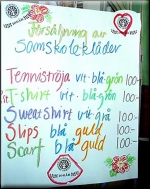 Försäljning av
Samskolekläder
Tenniströja vit-blå-grön 100-
T-shirt vit-blå 100-
Sweatshirt vit-grå 100-
Slips blå guld 100-
Scarf blå guld 100-